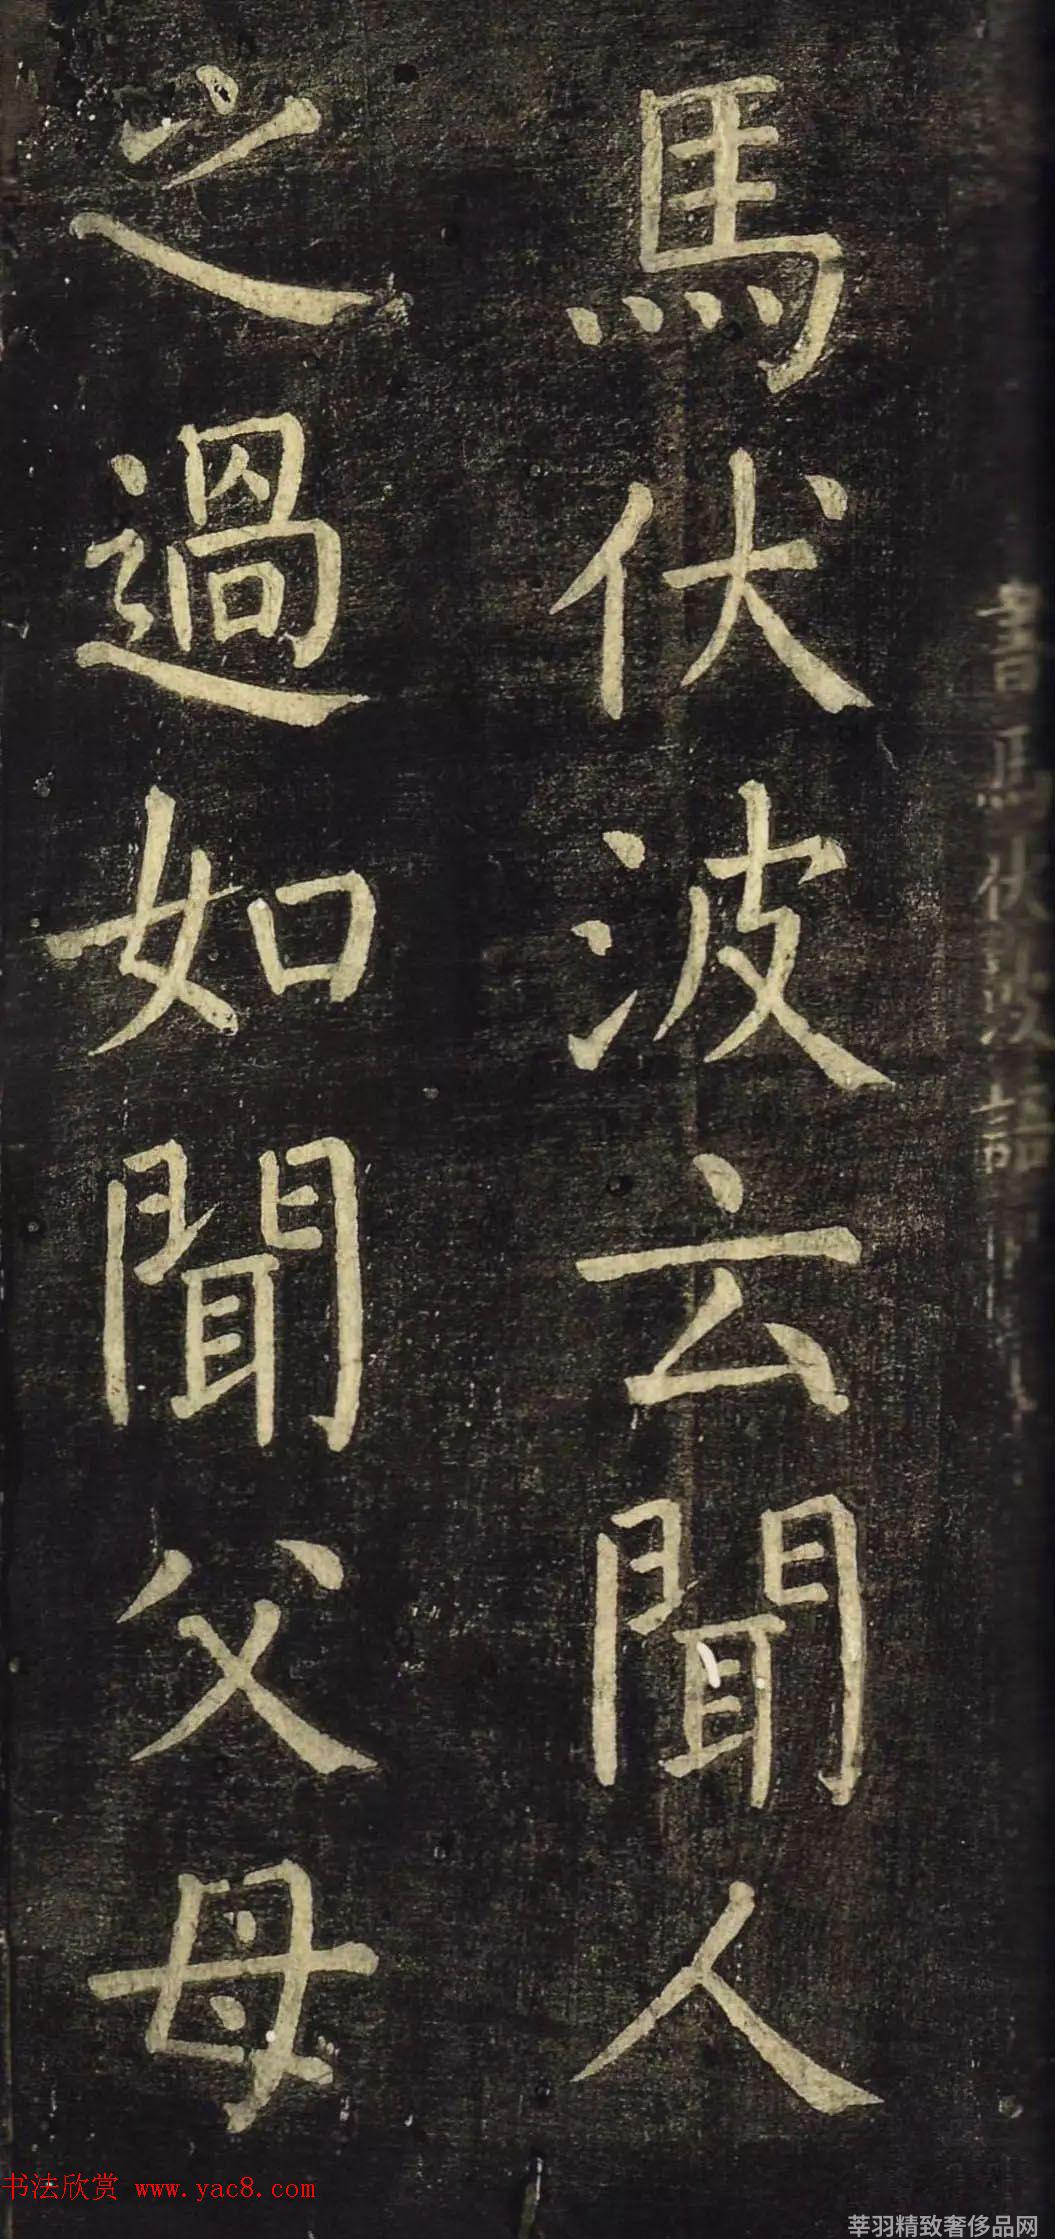 書馬伏波語
馬伏波云聞人
之過如聞父母
书法欣赏 www.yac8.com
莘羽精致奢侈品网